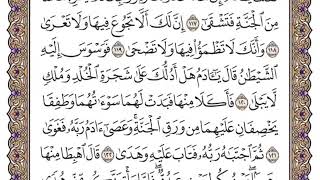 مِنَ الْجَنَّةِ فَتَشْقَىٰٓ ١١٧ إِنَّ لَكَ أَلَّا تَجُوعَ فِيهَا وَلَا تَعْرَىٰ
١١٨ وَأَنَّكَ لَا تَظْمَؤُا۟ فِيهَا وَلَا تَضْحَىٰ ١١٩ فَوَسْوَسَ إِلَيْهِ
الشَّيْطَٰنُ قَالَ يَٰٓـَٔادَمُ هَلْ أَدُلُّكَ عَلَىٰ شَجَرَةِ الْخُلْدِ وَمُلْكٍ
لَّا يَبْلَىٰ ١٢٠ فَأَكَلَا مِنْهَا فَبَدَتْ لَهُمَا سَوْءَٰتُهُمَا وَطَفِقَا
يَخْصِفَانِ عَلَيْهِمَا مِن وَرَقِ الْجَنَّةِ وَعَصَىٰٓ ءَادَمُ رَبَّهُۥ فَغَوَىٰ
١٢١ ثُمَّ اجْتَبَٰهُ رَبُّهُۥ فَتَابَ عَلَيْهِ وَهَدَىٰ ١٢٢ قَالَ اهْبِطَا مِنْهَا